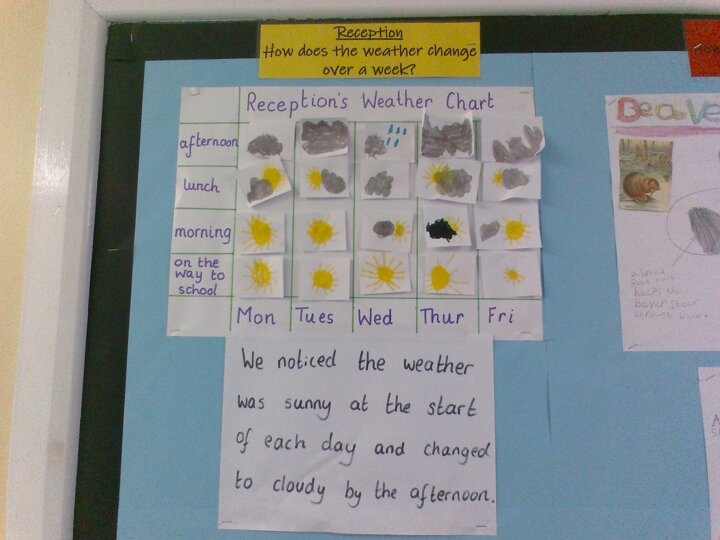 Reception
How does the weather change
over a week?
Reception's Weather Chart
afternoon
lunch
morning
on the
way to
school
Mon Tues Wed Thur Fri
We noticed the weather
was sunny at the start
of each day and changed
to cloudy by the afternoon.
Beave
helps the
through